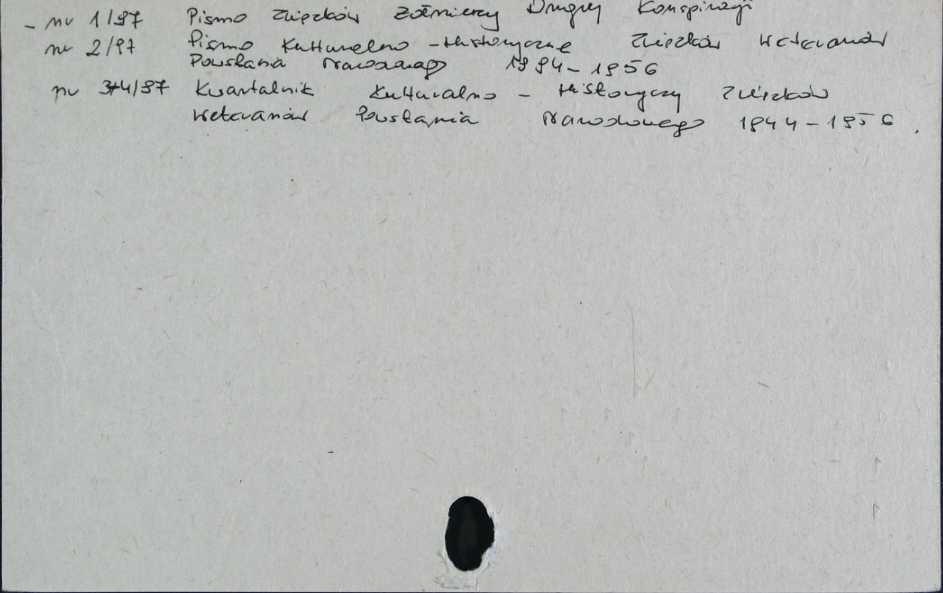 - nr 1/97 Pismo Związków Żołnierzy Drugiej Konspiracji
nr 2/97 Pismo Kulturalno - Historyczne Związków Weteranów
Powstania Narodowego 1944-1956
nr 3+4/97 Kwartalnik Kulturalno - Historyczny Związków
Weteranów Powstania Narodowego 1944-1956.